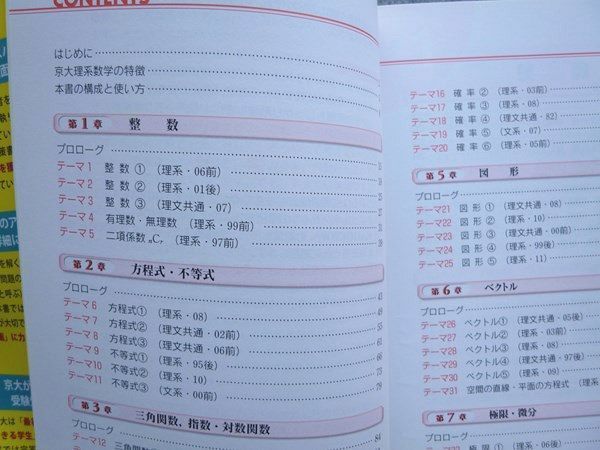 CONTENTS
はじめに
京大理系数学の特徴
本書の構成と使い方
第1章 整数
プロローグ
テーマ1 整数① (理系・06前)
テーマ2 整数② (理系・01後)
テーマ3 整数③ (理文共通・07)
テーマ4 有理数・無理数 (理系・99前)
テーマ5 二項係数 nCr (理系・97前)
第2章 方程式・不等式
プロローグ 43
テーマ6 方程式① (理系・08) 49
テーマ7 方程式② (理文共通・02前)
テーマ8 方程式③ (理文共通・06前)
テーマ9 不等式① (理系・95後)
テーマ10 不等式② (理系・10)
テーマ11 不等式③ (文系・00前) 79
第3章 三角関数,指数・対数関数
プロローグ 84
テーマ12 三角関数
テーマ16 確率② (理系・03前)
テーマ17 確率③ (理系・08)
テーマ18 確率④ (理文共通・82)
テーマ19 確率⑤ (文系・07)
テーマ20 確率⑥ (理系・05前)
第5章 図形
プロローグ
テーマ21 図形① (理文共通・08)
テーマ22 図形② (理系・10)
テーマ23 図形③ (理文共通・00前)
テーマ24 図形④ (理系・99後)
テーマ25 図形⑤ (理系・11)
第6章 ベクトル
プロローグ
テーマ26 ベクトル① (理文共通・05後)
テーマ27 ベクトル② (理系・03前)
テーマ28 ベクトル③ (理系・06前)
テーマ29 ベクトル④ (理文共通・97後)
テーマ30 ベクトル⑤ (理系・09)
テーマ31 空間の直線・平面の方程式 (理系
第7章 極限・微分
プロローグ
極限① (理系・06後)